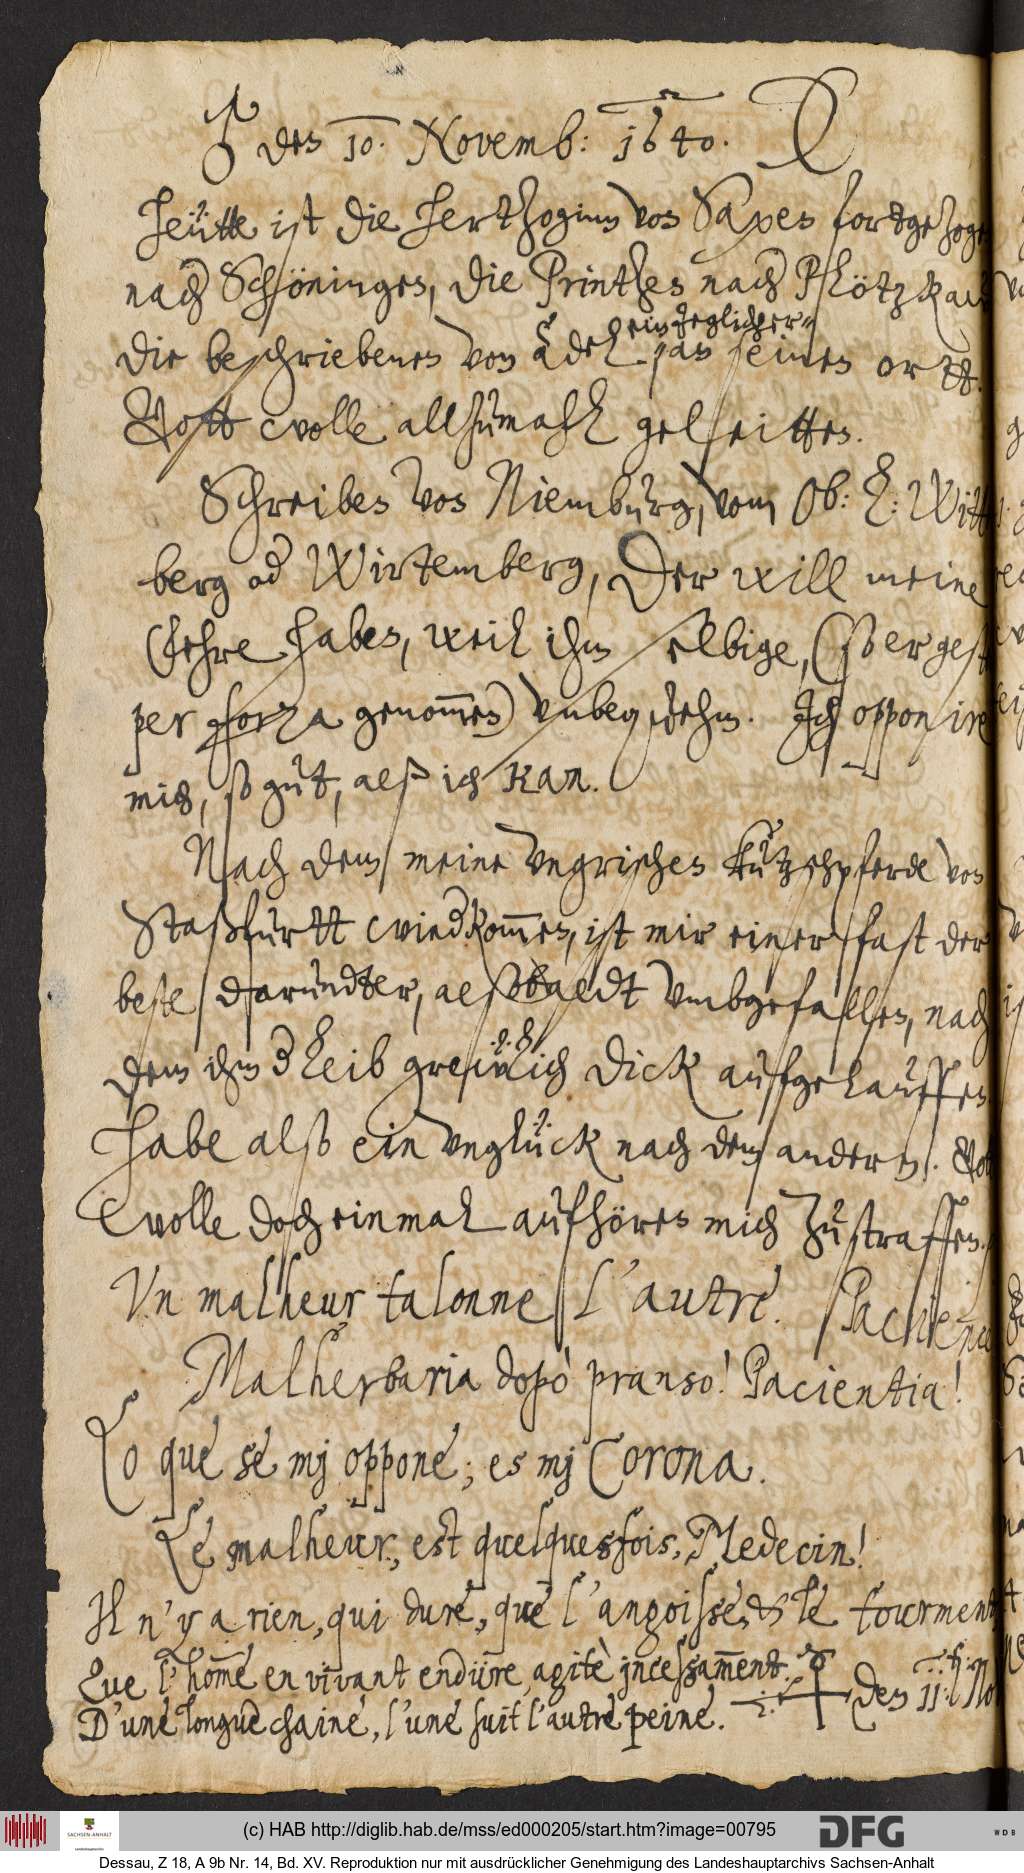 ♂ den 10. Novemb: 1640.
Heütte ist die Hertzoginn von Saxen fortgezogen
nach Schöningen, die Printzen nach Plötzkau
die beschriebenen von Adel ein ieglicher
an seinen ortt.
Gott wolle allzumahl geleitten.
Schreiben von Niemburg, vom Ob: L: Witt
berg od Wirtemberg, Der will meine
Fehre haben, weil ihm selbige,
per forza genommen) vnbequehm. Ich opponire
mich, so gut, alß ich kan.
Nach dem meine vngrischen kutzschpferde von
Staßfurtt wiedkommen, ist mir einer fast der
beste darundter, alsobaldt vmbgefallen, nach
dem ihm d leib greẅlich dick aufgelauffen
habe also ein vnglück nach dem andern. Gott
wolle doch einmal aufhören mich zu straffen.
Vn malheur talonne l'autre. Pacience
Malherbaria dopò pranso! Pacientia!
Lo que se mj oppone; es mj Corona.
Le malheur, est quelquesfois, Medecin!
Il n'y a rien, qui dure, que l'angoisse, & le tourment,
Que l'home en vivant endüre, agitè jncessament.
D'une longue chaine, l'une suit l'autre peine.
den 11. No
(c) HAB http://diglib.hab.de/mss/ed000205/start.htm?image=00795
SACHSEN-ANHALT
DFG
WDB
Dessau, Z 18, A 9b Nr. 14, Bd. XV. Reproduktion nur mit ausdrücklicher Genehmigung des Landeshauptarchivs Sachsen-Anhalt